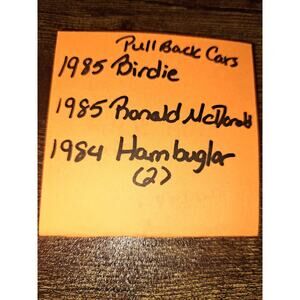 Pull Back Cars
1985 Birdie
1985 Ronald McDonald
1984 Hambuglar
(2)